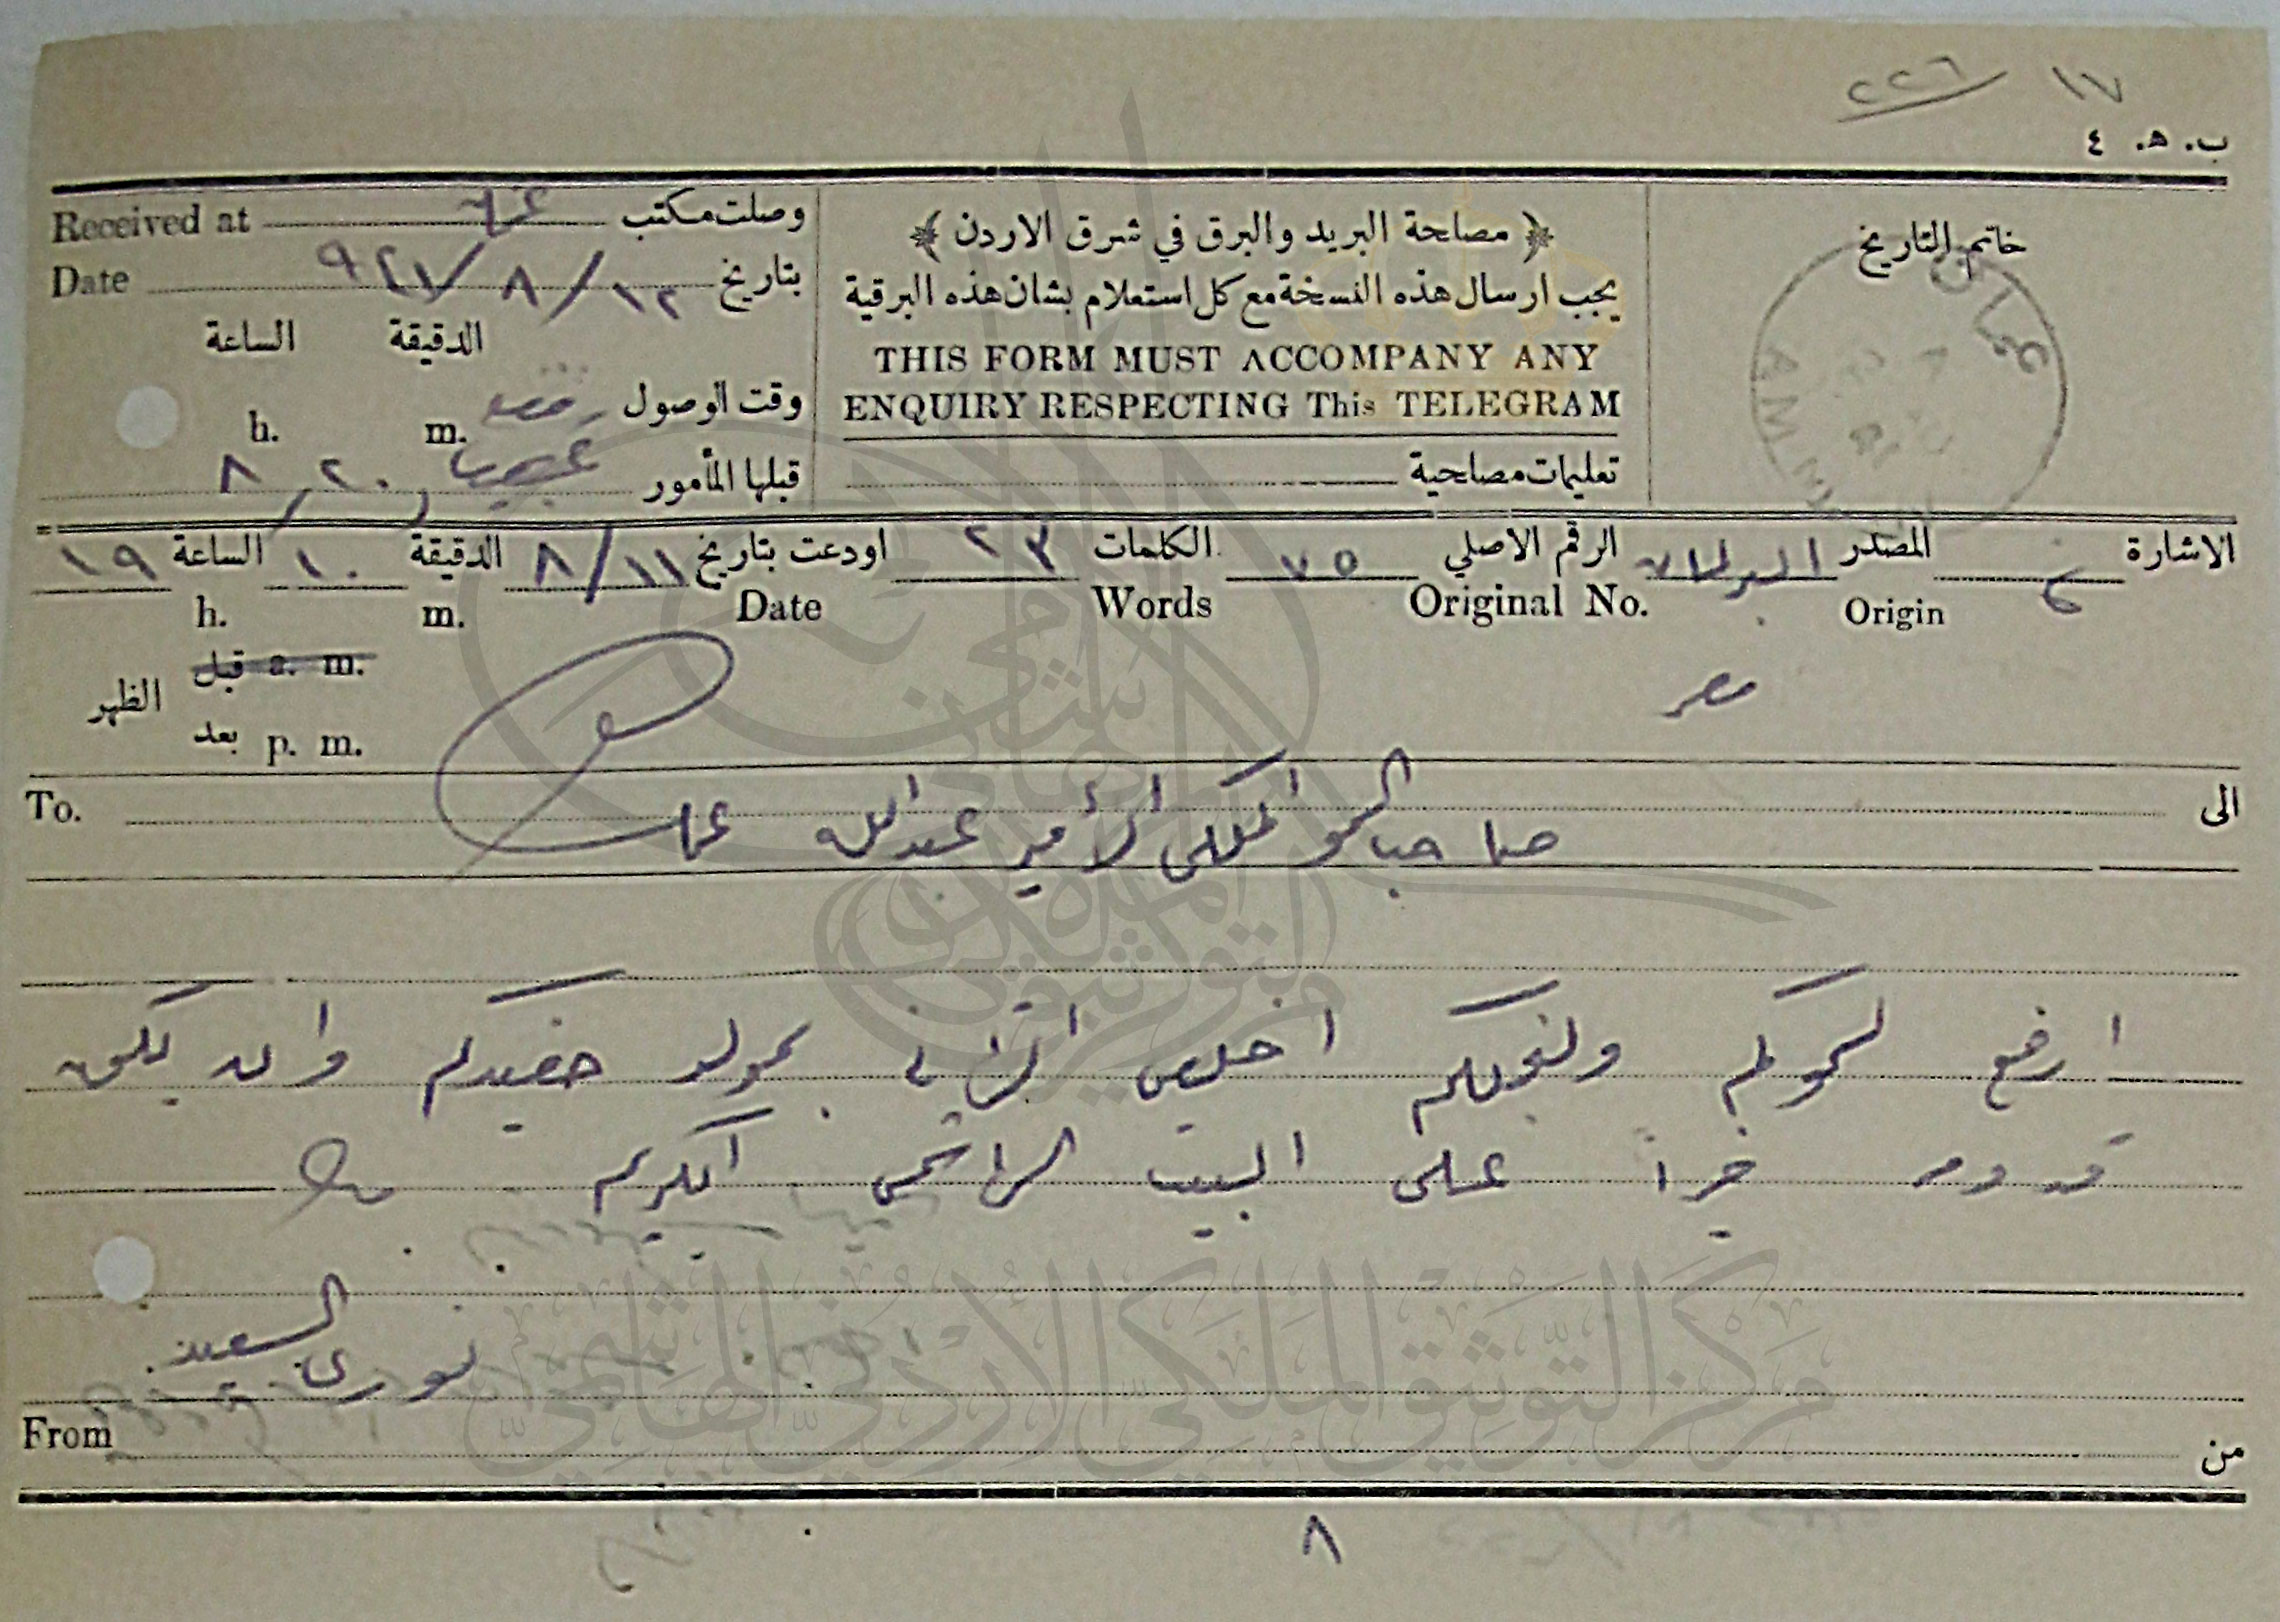 ١٧ ٢٢٦
ب. ه. ٤
خاتم التاريخ
عمان
AMMAN
﴿ مصلحة البريد والبرق في شرق الاردن ﴾
يجب ارسال هذه النسخة مع كل استعلام بشان هذه البرقية
THIS FORM MUST ACCOMPANY ANY
ENQUIRY RESPECTING This TELEGRAM
تعليمات مصلحية
Received at وصلت مكتب
Date بتاريخ ١٢/٨/
الساعة الدقيقة
وقت الوصول h. m.
قبلها المأمور ٨/٢٠
الاشارة المصدر البرلمان الرقم الاصلي ٧٥ الكلمات ٢٣ اودعت بتاريخ ١١/٨ الدقيقة ١٠ الساعة ١٩
Origin Original No. Words Date m. h.
قبل a. m.
الظهر
بعد p. m.
مصر
To. الى
صاحب السمو الملكي الأمير عبدالله عمان
ارفع لسموكم ولنجلكم اخلص التهاني بمولد حفيدكم وان يكون
قدومه خيرا على البيت الهاشمي الكريم
نوري السعيد
From من
٨
مركز التوثيق الملكي الأردني الهاشمي